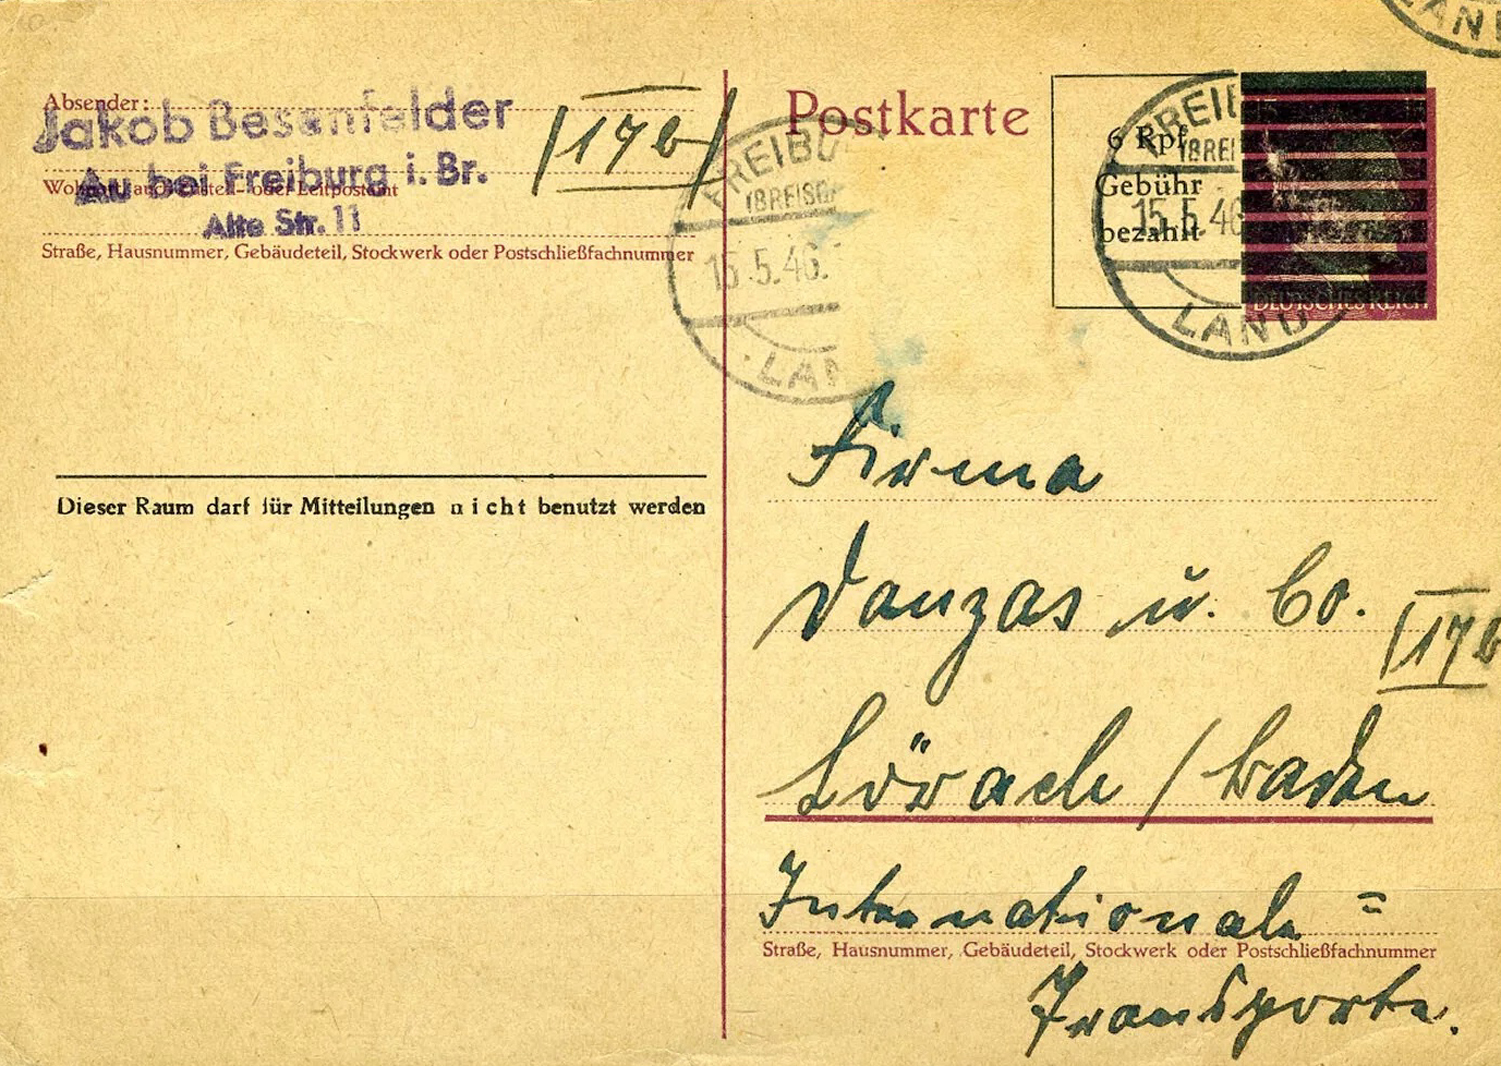 LAND
Absender:
Jakob Besenfelder
Au bei Freiburg i. Br.
Wohnort, auch Zustell- oder Leitpostamt
Alte Str. 11
Straße, Hausnummer, Gebäudeteil, Stockwerk oder Postschließfachnummer
17b
FREIBU
(BREISG
15.5.46.
LAN
Postkarte
6 Rpf
Gebühr
bezahlt
FREIB
(BREI
15.5.46
LAND
DEUTSCHES REICH
Dieser Raum darf für Mitteilungen nicht benutzt werden
Firma
Danzas u. Co.
17b
Lörach / Baden
Internationale =
Straße, Hausnummer, Gebäudeteil, Stockwerk oder Postschließfachnummer
Transporte.